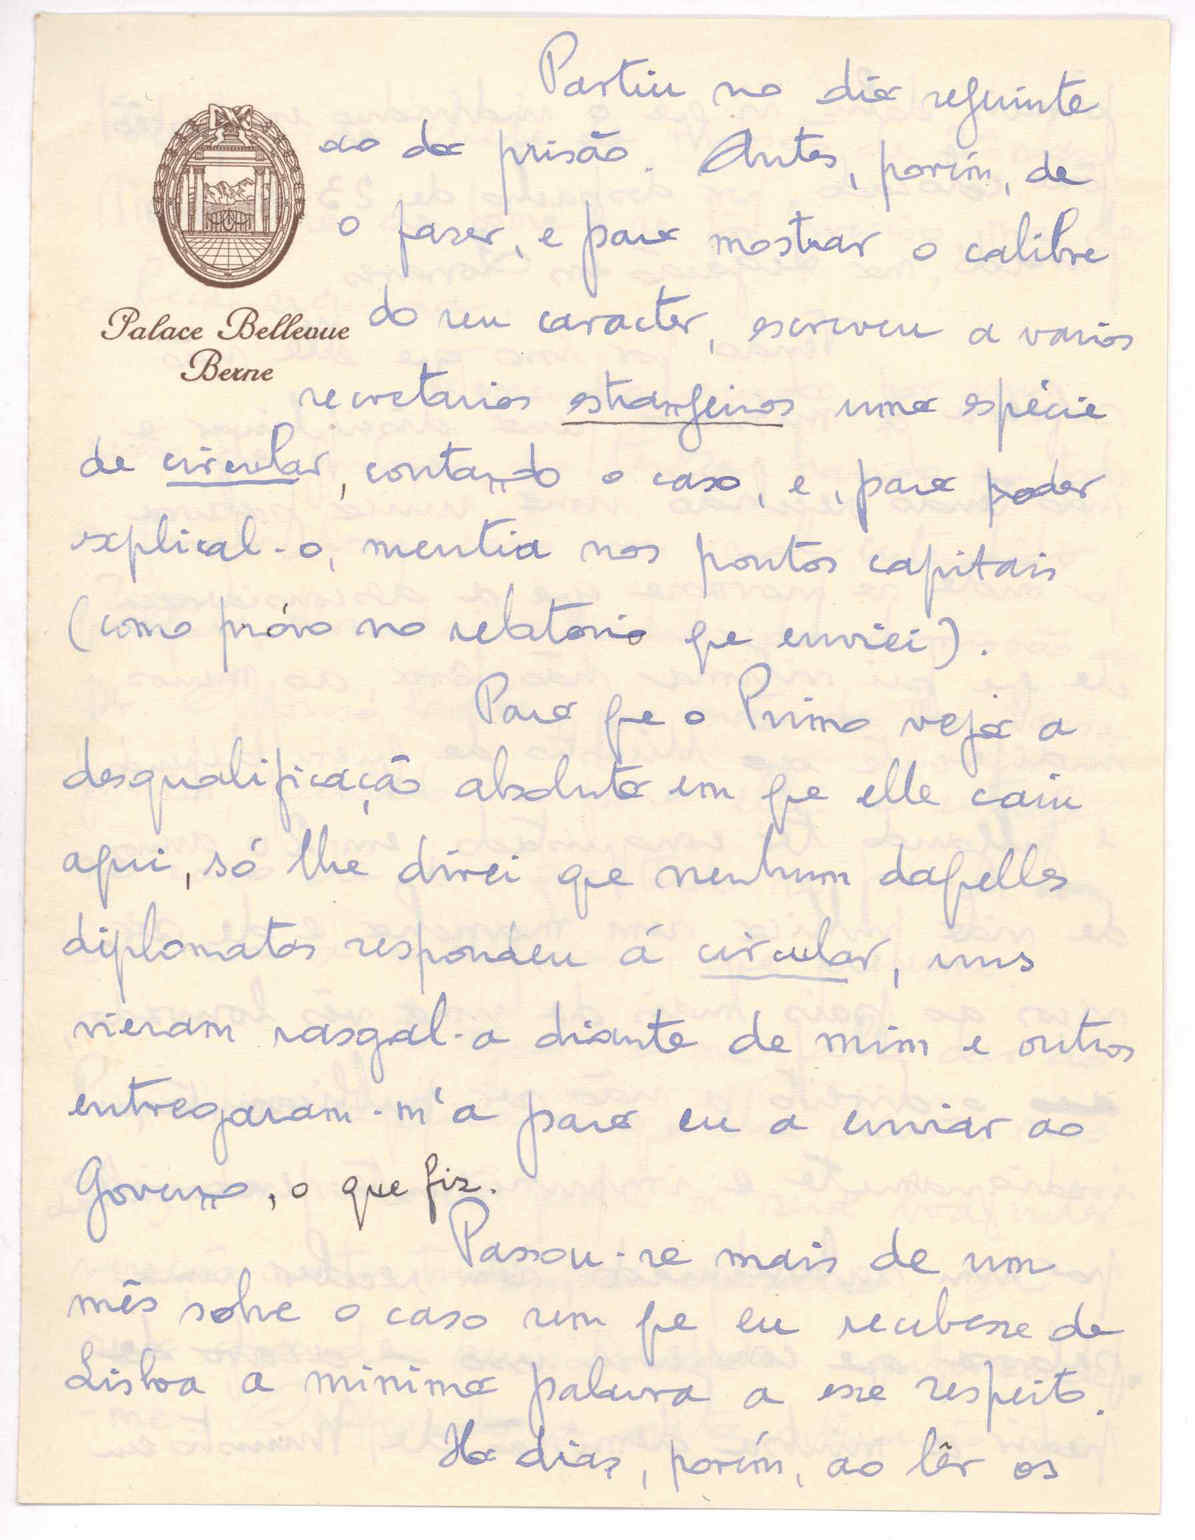 Partiu no dia seguinte
ao da prisão. Antes, porém, de
o fazer, e para mostrar o calibre
Palace Bellevue
Berne
do seu caracter, escreveu a varios
secretarios estrangeiros uma espécie
de circular, contando o caso, e, para poder
explical-o, mentia nos pontos capitais
(como próvo no relatorio que enviei).
Para que o Primo veja a
desqualificação absoluta em que elle caiu
aqui, só lhe direi que nenhum daquelles
diplomatas respondeu á circular, uns
vieram rasgal-a diante de mim e outros
entregaram-m'a para eu a enviar ao
Governo, o que fiz.
Passou-se mais de um
mês sobre o caso sem que eu recebesse de
Lisboa a minima palavra a esse respeito.
Ha dias, porém, ao lêr os